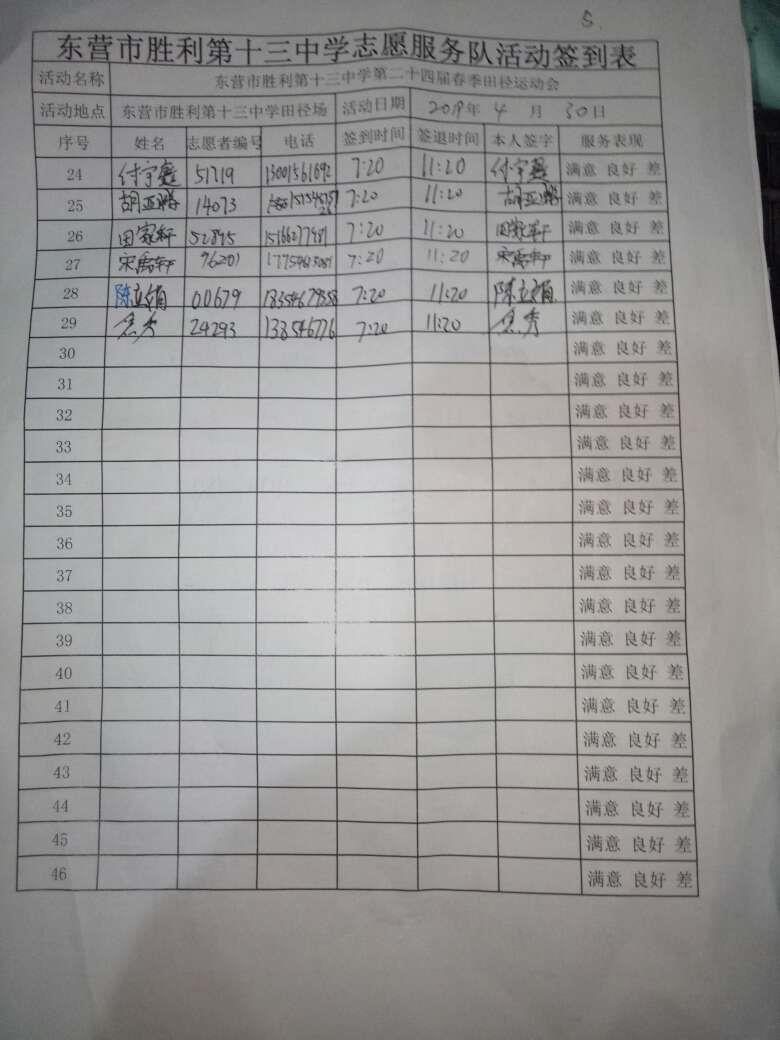 5.
东营市胜利第十三中学志愿服务队活动签到表
活动名称 东营市胜利第十三中学第二十四届春季田径运动会
活动地点 东营市胜利第十三中学田径场 活动日期 2019年 4 月 30日
序号 姓名 志愿者编号 电话 签到时间 签退时间 本人签字 服务表现
24 付宇鑫 51719 13001561692 7:20 11:20 付宇鑫 满意 良好 差
25 胡亚 14073 7:20 11:20 胡亚 满意 良好 差
26 田家轩 52895 7:20 11:20 田家轩 满意 良好 差
27 宋禹轩 96201 7:20 11:20 宋禹轩 满意 良好 差
28 陈立娟 00679 18354679358 7:20 11:20 陈立娟 满意 良好 差
29 秀 24293 138546776 7:20 11:20 秀 满意 良好 差
30 满意 良好 差
31 满意 良好 差
32 满意 良好 差
33 满意 良好 差
34 满意 良好 差
35 满意 良好 差
36 满意 良好 差
37 满意 良好 差
38 满意 良好 差
39 满意 良好 差
40 满意 良好 差
41 满意 良好 差
42 满意 良好 差
43 满意 良好 差
44 满意 良好 差
45 满意 良好 差
46 满意 良好 差